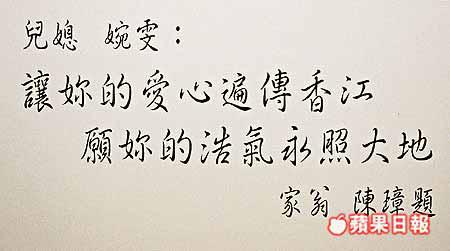 兒媳 婉雯：
讓妳的愛心遍傳香江
願妳的浩氣永照大地
家翁 陳璋題
蘋果日報